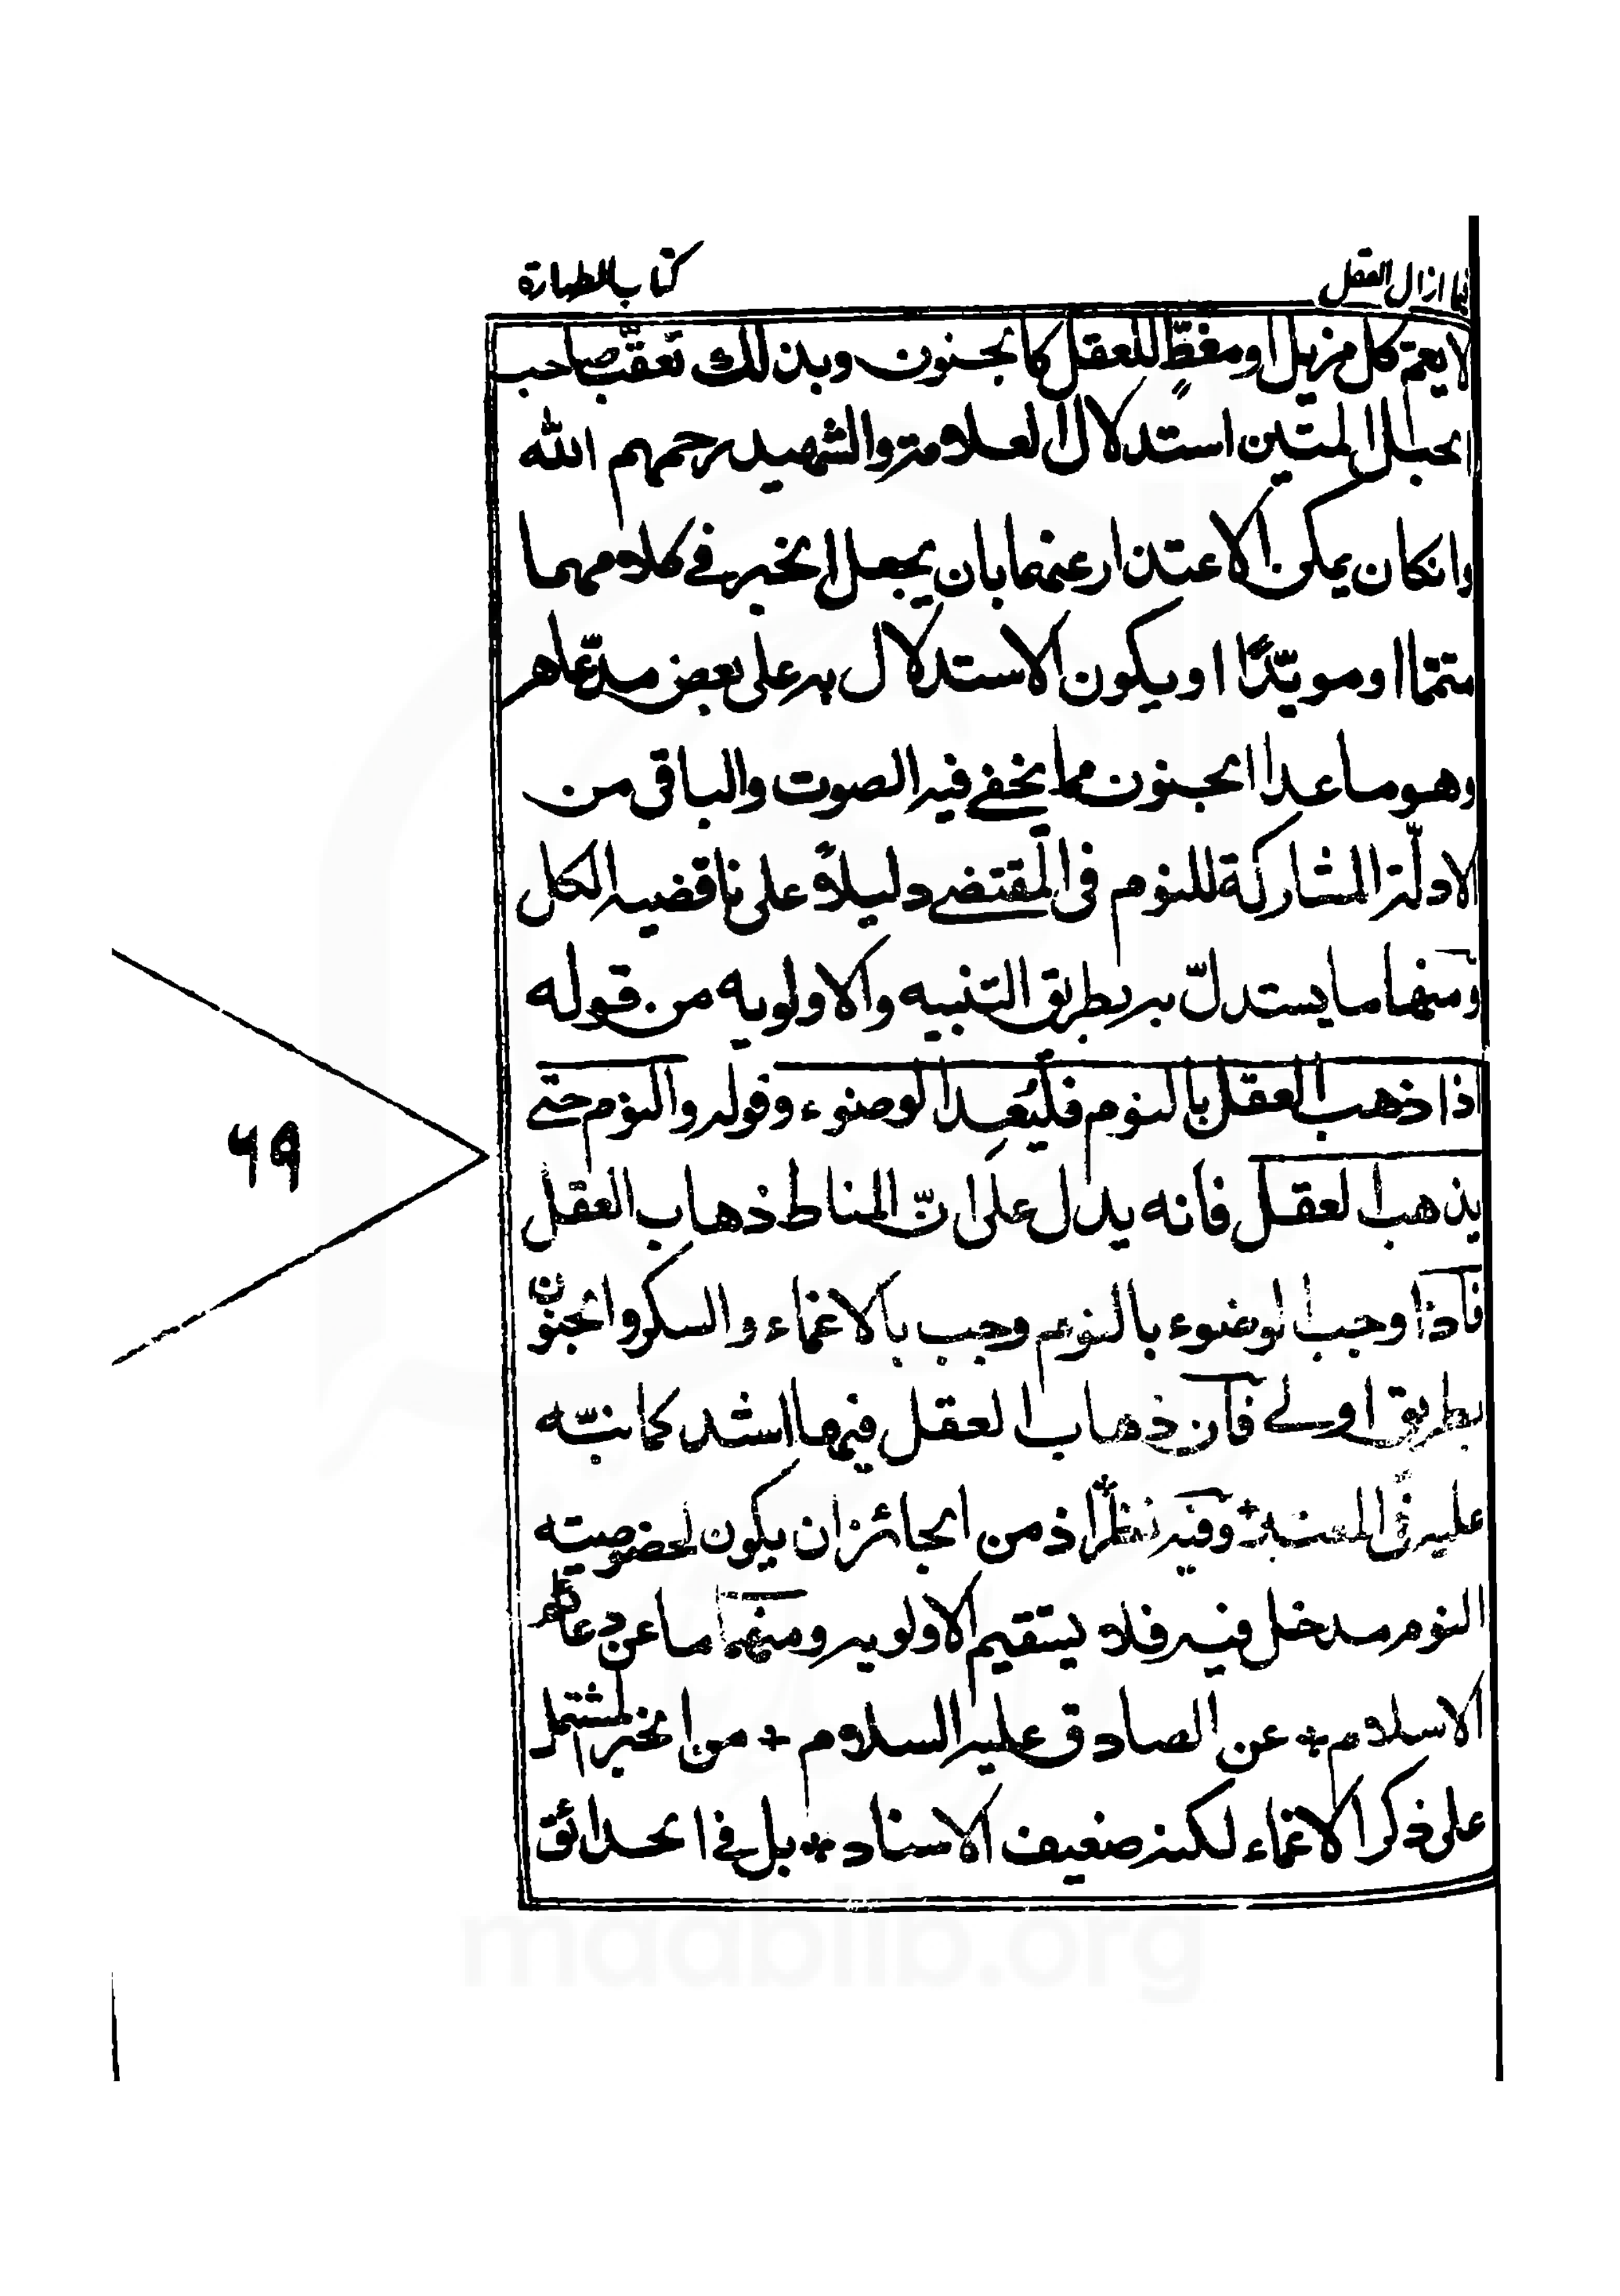 فيما ازال العقل
كتاب الطهارة
لا يعمّ كل مزيل او مغطٍّ للعقل كالجنون وبذلك تعقّب صاحب
الحبل المتين استدلال العلامة والشهيد رحمهم الله
وان كان يمكن الاعتذار عنهما بان يجعل الخبر في كلامهما
متمما او مويّدًا او يكون الاستدلال به على بعض مدّعاهم
وهو ما عدا الجنون مما يخفى فيه الصوت والباقي من
الادلّة المشاركة للنوم في المقتضى دليلاً على ناقضيه الكل
ومنها ما يستدلّ به بطريق التنبيه والاولويه من قوله
اذا ذهب العقل بالنوم فليُعِد الوضوء وقوله والنوم حتى
يذهب العقل فانه يدل على انّ المناط ذهاب العقل
فاذا وجب الوضوء بالنوم وجب بالاغماء والسكر والجنون
بطريق اولى فان ذهاب العقل فيها اشد كما نبّه
عليه في وفيه نظر اذ من الجائز ان يكون لخصوصيته
النوم مدخل فيه فلا يستقيم الاولويه ومنها ما عن دعائم
الاسلام * عن الصادق عليه السلام * من الخبر المشتمل
على ذكر الاغماء لكنه ضعيف الاسناد * بل في الحدائق
٦٩
maablib.org